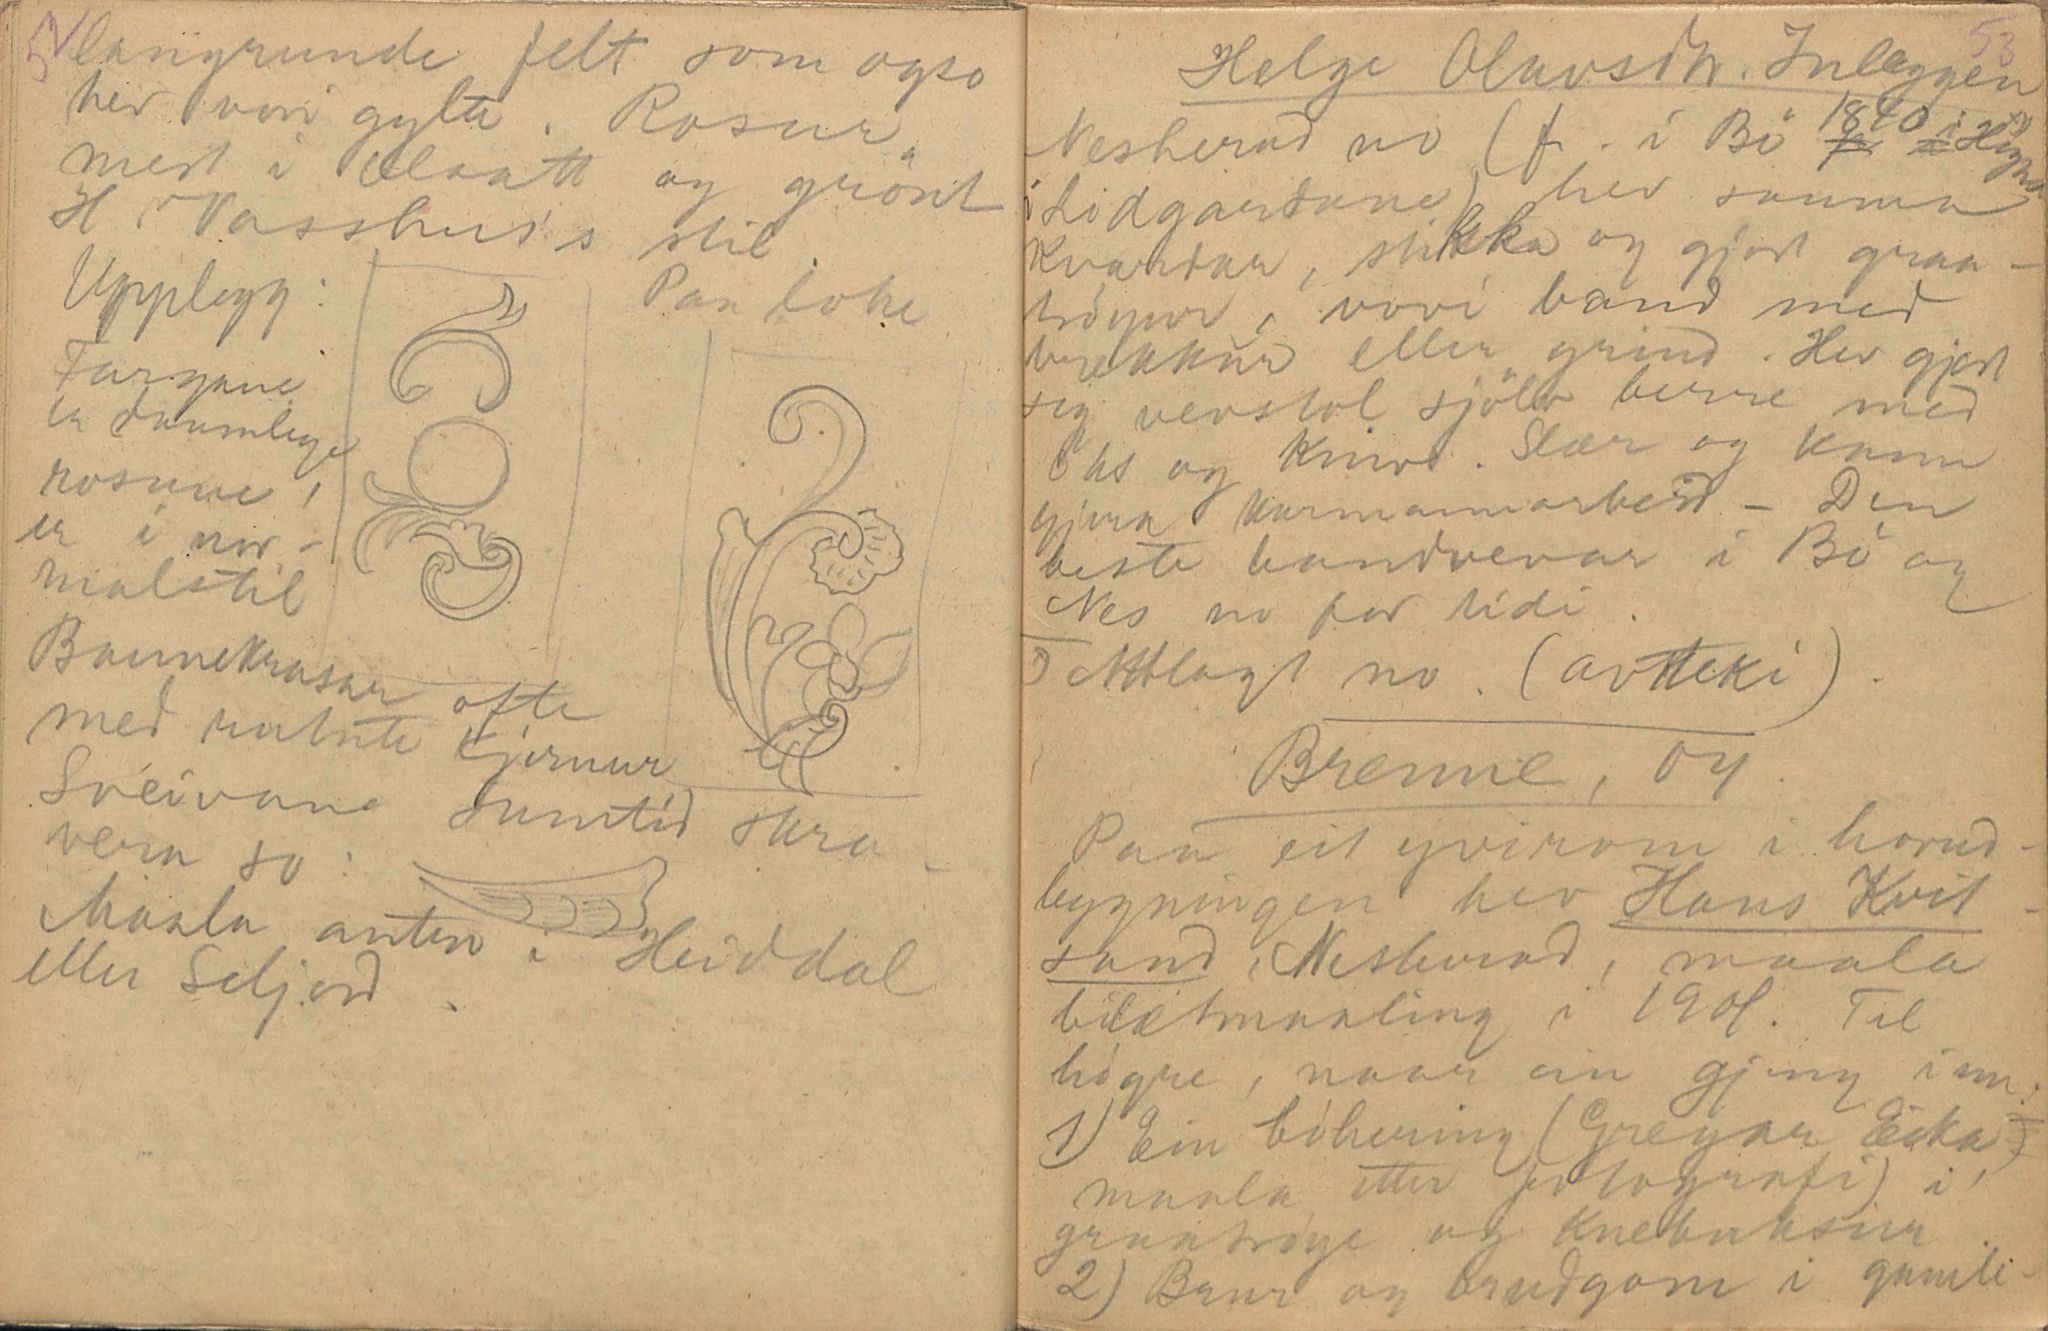 52
langrunde felt som ogso
hev vori gylte. Rosur,
mest i blaatt og grönt
H. Vasshus's stil.
Upplegg:
Paa loke
Fargane
er daamlege
rosune,
er i nor-
malstil
Baunekrasar ofte
med rutute kjernur
Sveivane sumtid skra-
vera so:
Maala anten i Heiddal
eller Seljord.
53
Helge Olavsdtr. Inleggen
Nesherad no (f. i Bö 1840 i Haugen
i Lidgardane) hev sauma
kvardar, stikka og gjort graa-
tröyur, vovi band med
brikkur eller grind. Hev gjort
seg vevstol sjölv berre med
öks og kniv. Slær og kann
gjera karmannarbeid - Den
beste bandvevar i Bö og
Nes no for tidi.
Nedlagt no. (avteki).
Brenne, Oy.
Paa eit yvirom i hovud-
bygningen hev Hans Kvit-
sand, Nesherad, maala
biletmaaling i 1901. Til
högre, naar ein gjeng inn:
1) Ein böhering (Gregar Eika,
maala etter fotografi) i
graatröye og knebuksur.
2) Brur og brudgom i gamli-